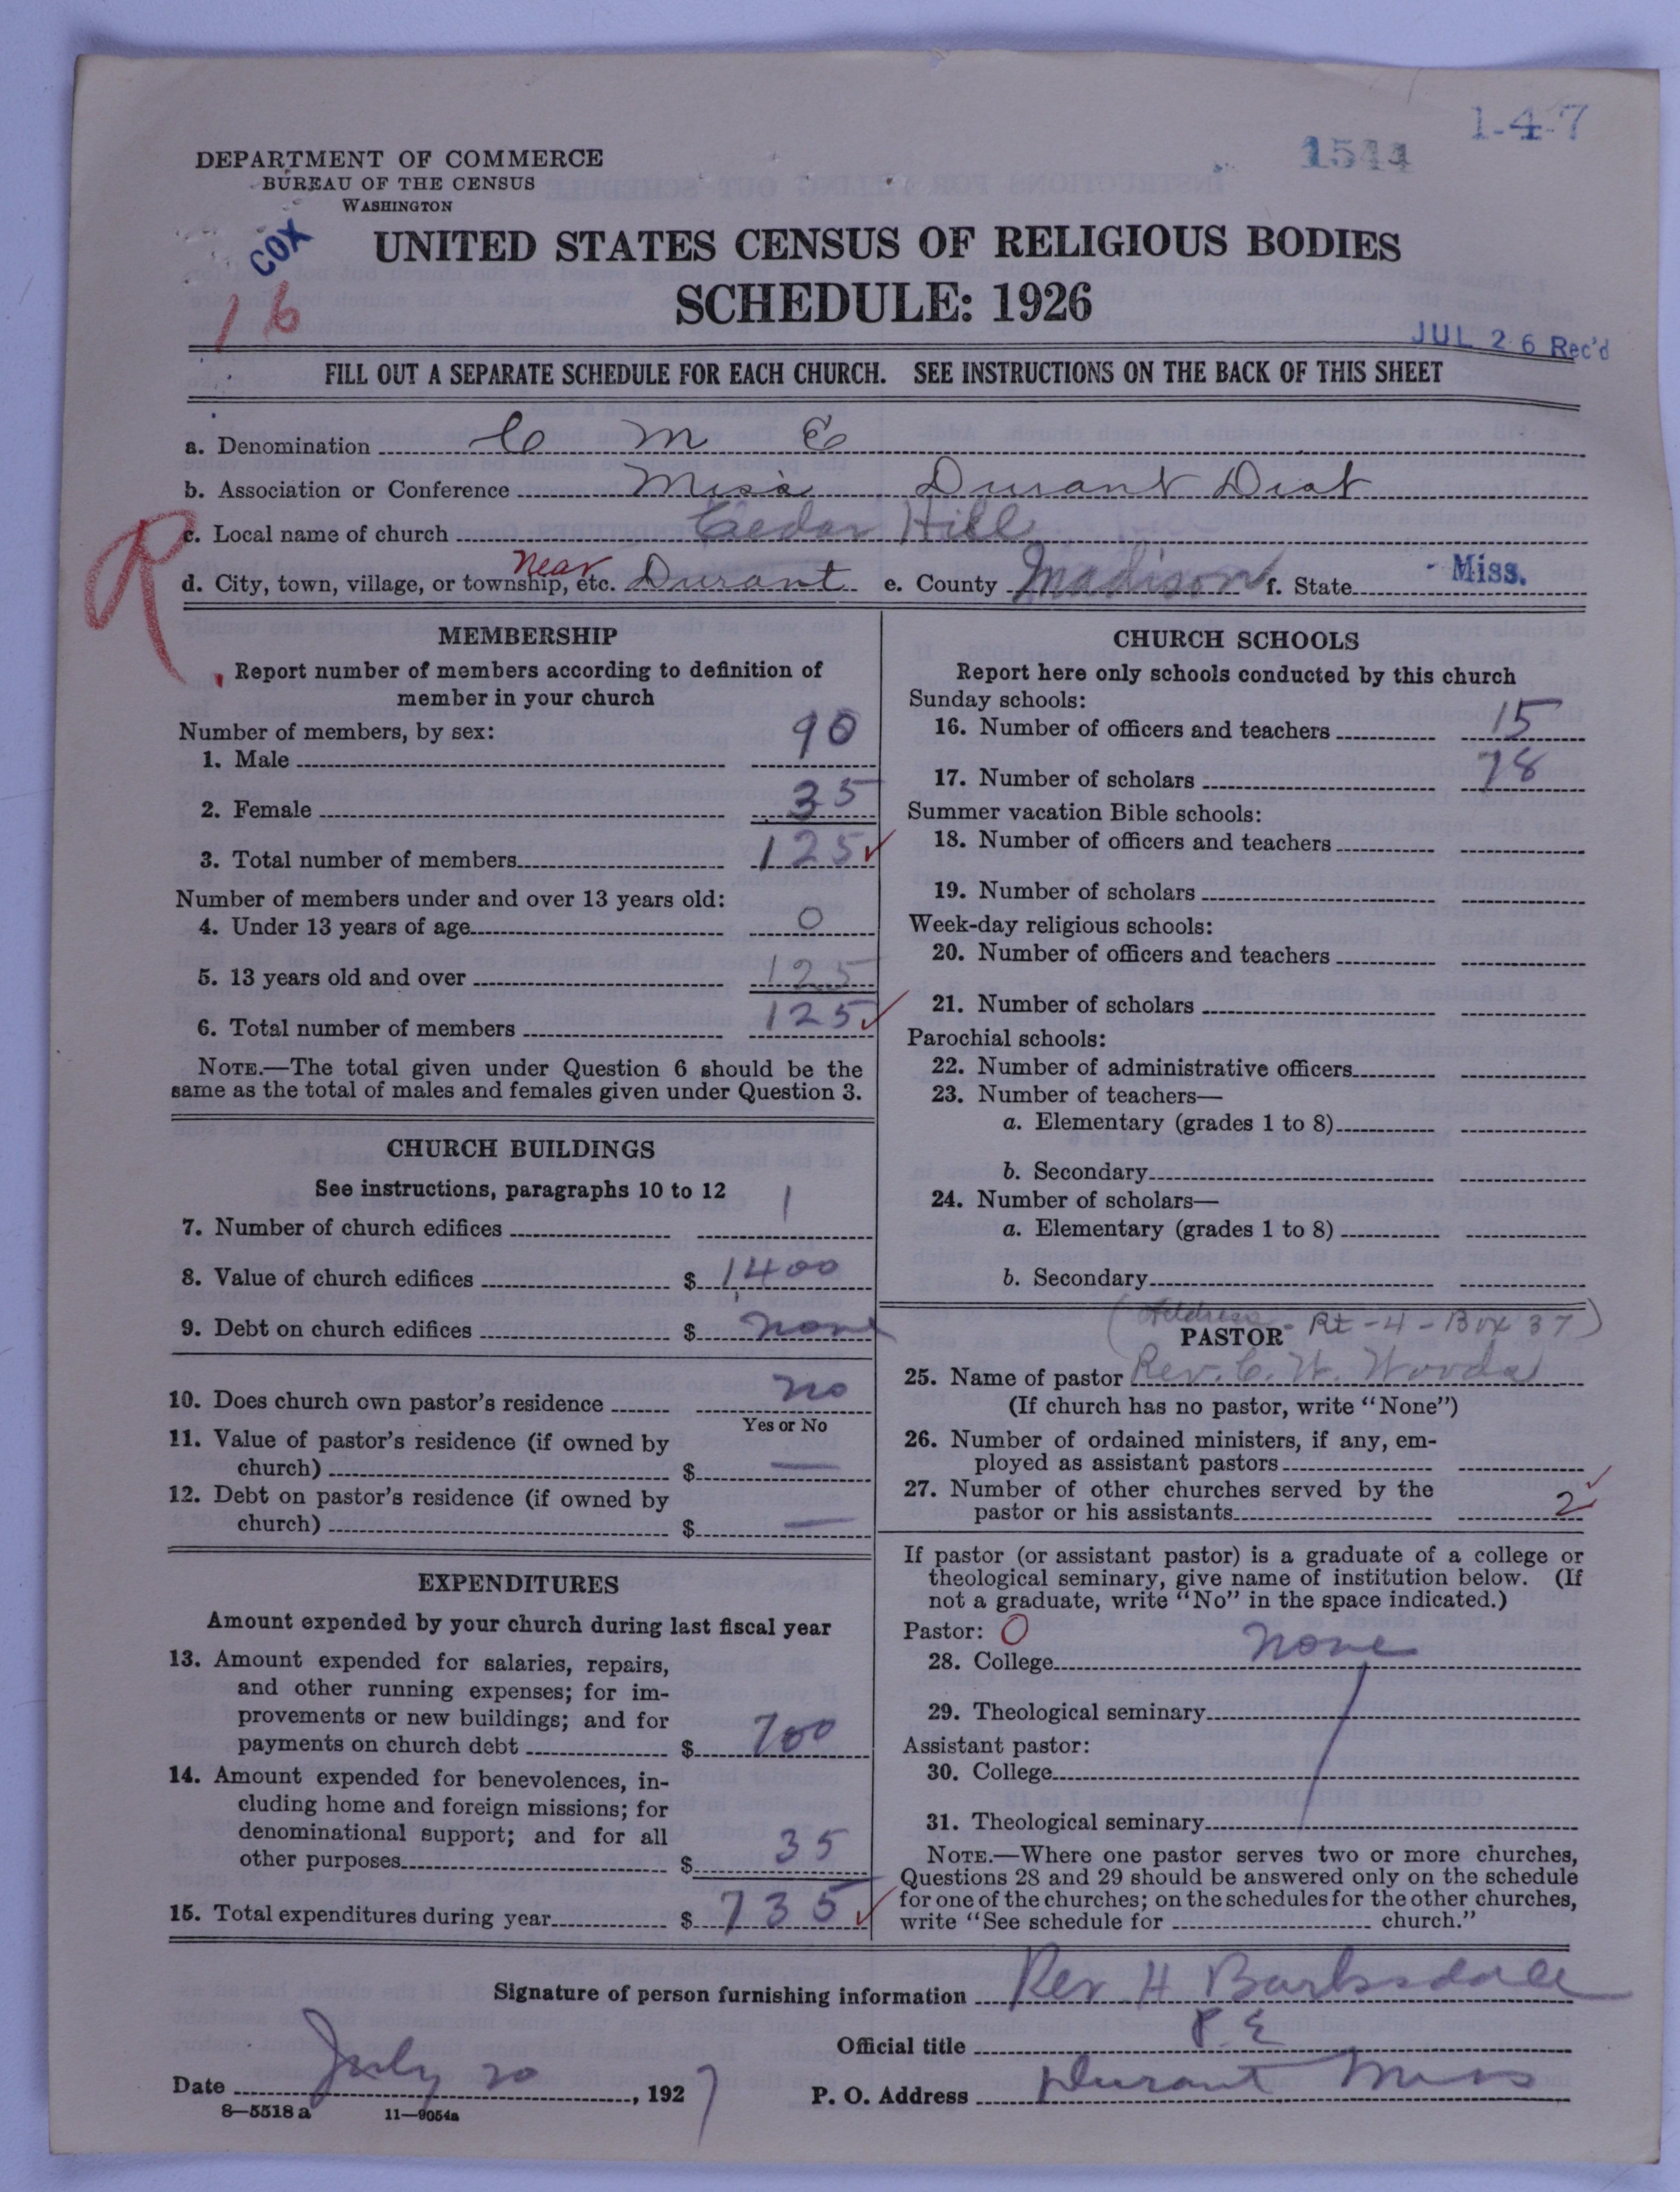 1-4-7
1544
DEPARTMENT OF COMMERCE
BUREAU OF THE CENSUS
WASHINGTON
COX
UNITED STATES CENSUS OF RELIGIOUS BODIES
16
SCHEDULE: 1926
JUL 26 Rec'd
FILL OUT A SEPARATE SCHEDULE FOR EACH CHURCH. SEE INSTRUCTIONS ON THE BACK OF THIS SHEET
a. Denomination C M E
b. Association or Conference Miss Durant Dist
R
c. Local name of church Cedar Hill
d. City, town, village, or township, etc. Near Durant e. County Madison f. State Miss.
MEMBERSHIP
Report number of members according to definition of
member in your church
Number of members, by sex:
1. Male 90
2. Female 35
3. Total number of members 125 ✓
Number of members under and over 13 years old:
4. Under 13 years of age 0
5. 13 years old and over 125
6. Total number of members 125 ✓
NOTE.—The total given under Question 6 should be the
same as the total of males and females given under Question 3.
CHURCH BUILDINGS
See instructions, paragraphs 10 to 12
7. Number of church edifices 1
8. Value of church edifices $ 1400
9. Debt on church edifices $ none
10. Does church own pastor's residence no
Yes or No
11. Value of pastor's residence (if owned by
church) $ —
12. Debt on pastor's residence (if owned by
church) $ —
EXPENDITURES
Amount expended by your church during last fiscal year
13. Amount expended for salaries, repairs,
and other running expenses; for im-
provements or new buildings; and for
payments on church debt $ 700
14. Amount expended for benevolences, in-
cluding home and foreign missions; for
denominational support; and for all
other purposes $ 35
15. Total expenditures during year $ 735 ✓
CHURCH SCHOOLS
Report here only schools conducted by this church
Sunday schools:
16. Number of officers and teachers 15
17. Number of scholars 78
Summer vacation Bible schools:
18. Number of officers and teachers
19. Number of scholars
Week-day religious schools:
20. Number of officers and teachers
21. Number of scholars
Parochial schools:
22. Number of administrative officers
23. Number of teachers—
a. Elementary (grades 1 to 8)
b. Secondary
24. Number of scholars—
a. Elementary (grades 1 to 8)
b. Secondary
(Address - Rt - 4 - Box 37)
PASTOR
25. Name of pastor Rev. C. W. Woods
(If church has no pastor, write "None")
26. Number of ordained ministers, if any, em-
ployed as assistant pastors
27. Number of other churches served by the
pastor or his assistants 2 ✓
If pastor (or assistant pastor) is a graduate of a college or
theological seminary, give name of institution below. (If
not a graduate, write "No" in the space indicated.)
Pastor: O
28. College none
29. Theological seminary
Assistant pastor:
30. College
31. Theological seminary
NOTE.—Where one pastor serves two or more churches,
Questions 28 and 29 should be answered only on the schedule
for one of the churches; on the schedules for the other churches,
write "See schedule for church."
Signature of person furnishing information Rev H Barksdale
Official title P. E
Date July 20, 1927 P. O. Address Durant Miss
8—5518 a 11—9054a